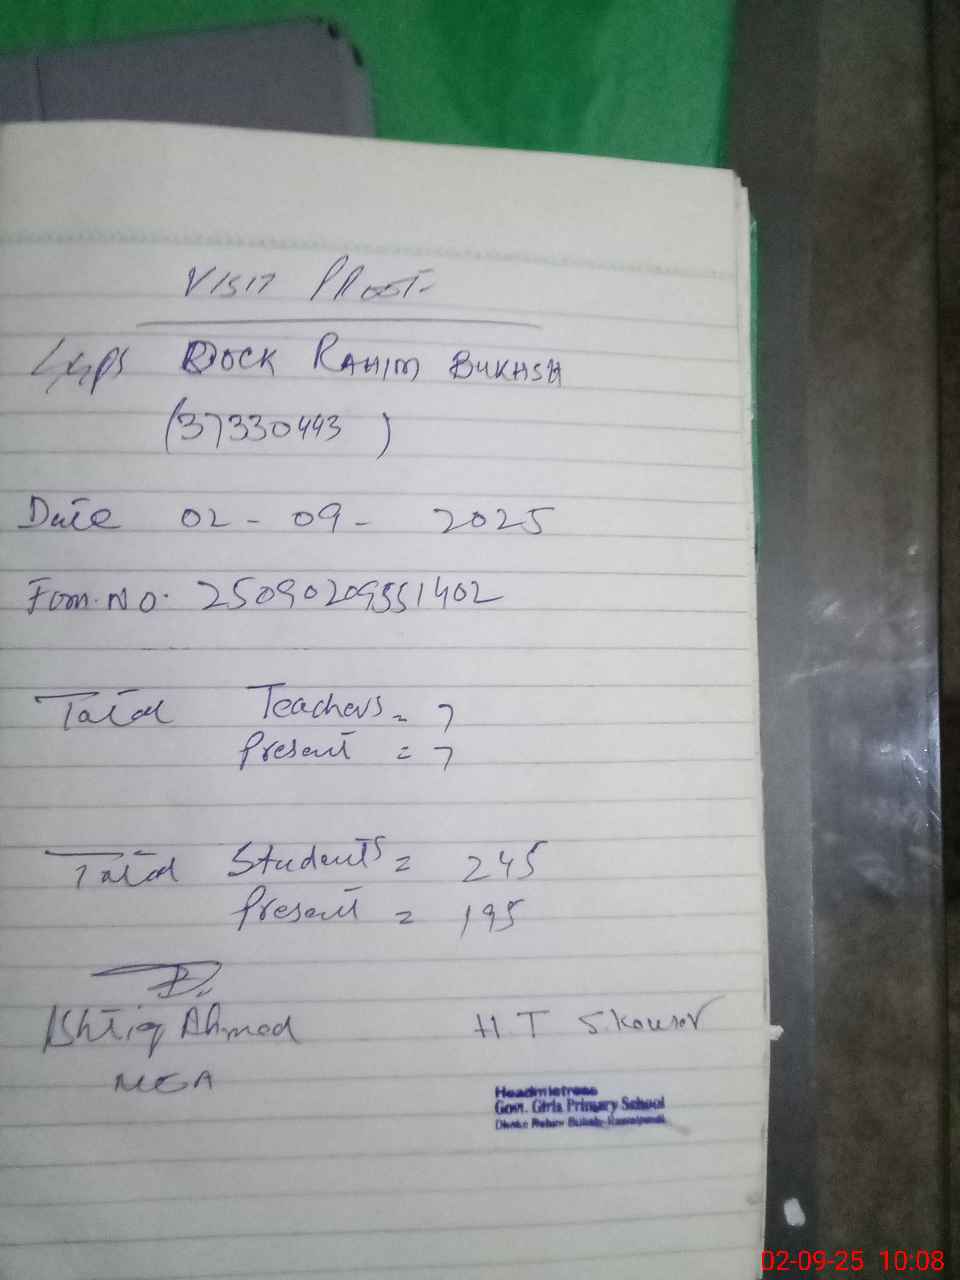 VISIT PROOF
GGPS DOCK RAHIM BUKHSH
(37330443)
Date 02-09-2025
Form.No. 25090209551402
Total Teachers = 7
Present = 7
Total Students = 245
Present = 195
Ishtiq Ahmed
H T S.Kouser
MEA
Headmistress
Govt. Girls Primary School
Rawalpindi
02-09-25 10:08